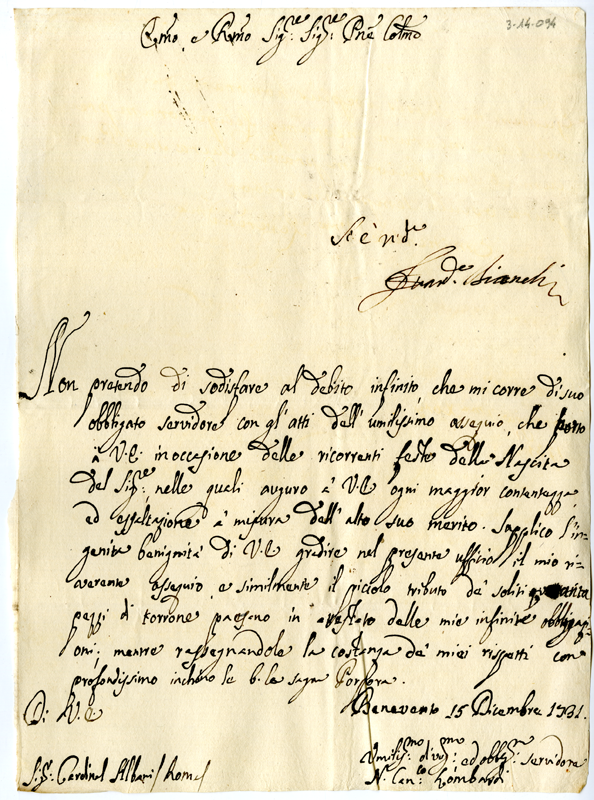 3-14-094
Emo, e Rmo Sig.re Sig.re Pne Colmo
Bianchi
Non pretendo di sodisfare al debito infinito, che mi corre di suo
obbligato servidore con gl'atti dell'umilissimo assequio, che porto
à V.E. in occasione delle ricorrenti feste della Nascita
del Sig.re nelle quali auguro à V.E. ogni maggior contentezza,
ed essaltazione à misura dell'alto suo merito. Supplico l'in-
genita benignità di V.E. gradire nel presente ufficio il mio ri-
verente assequio, e similmente il piccolo tributo de' soliti quaranta
pezzi di torrone paesano in attestato delle mie infinite obbligazi-
oni; mentre rassegnandole la costanza de' miei rispetti con
profondissimo inchino le b. la sagra Porpora.
Di V.E. Benevento 15 Dicembre 1731.
Umiliss.mo divot.mo ed obblig.mo servidore
Sig.r Cardinal Albani / Roma / N. Can.co Lombardi